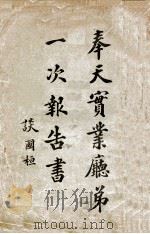 奉天實業廳弟
一次報告書
談國桓
www.mtoou.info